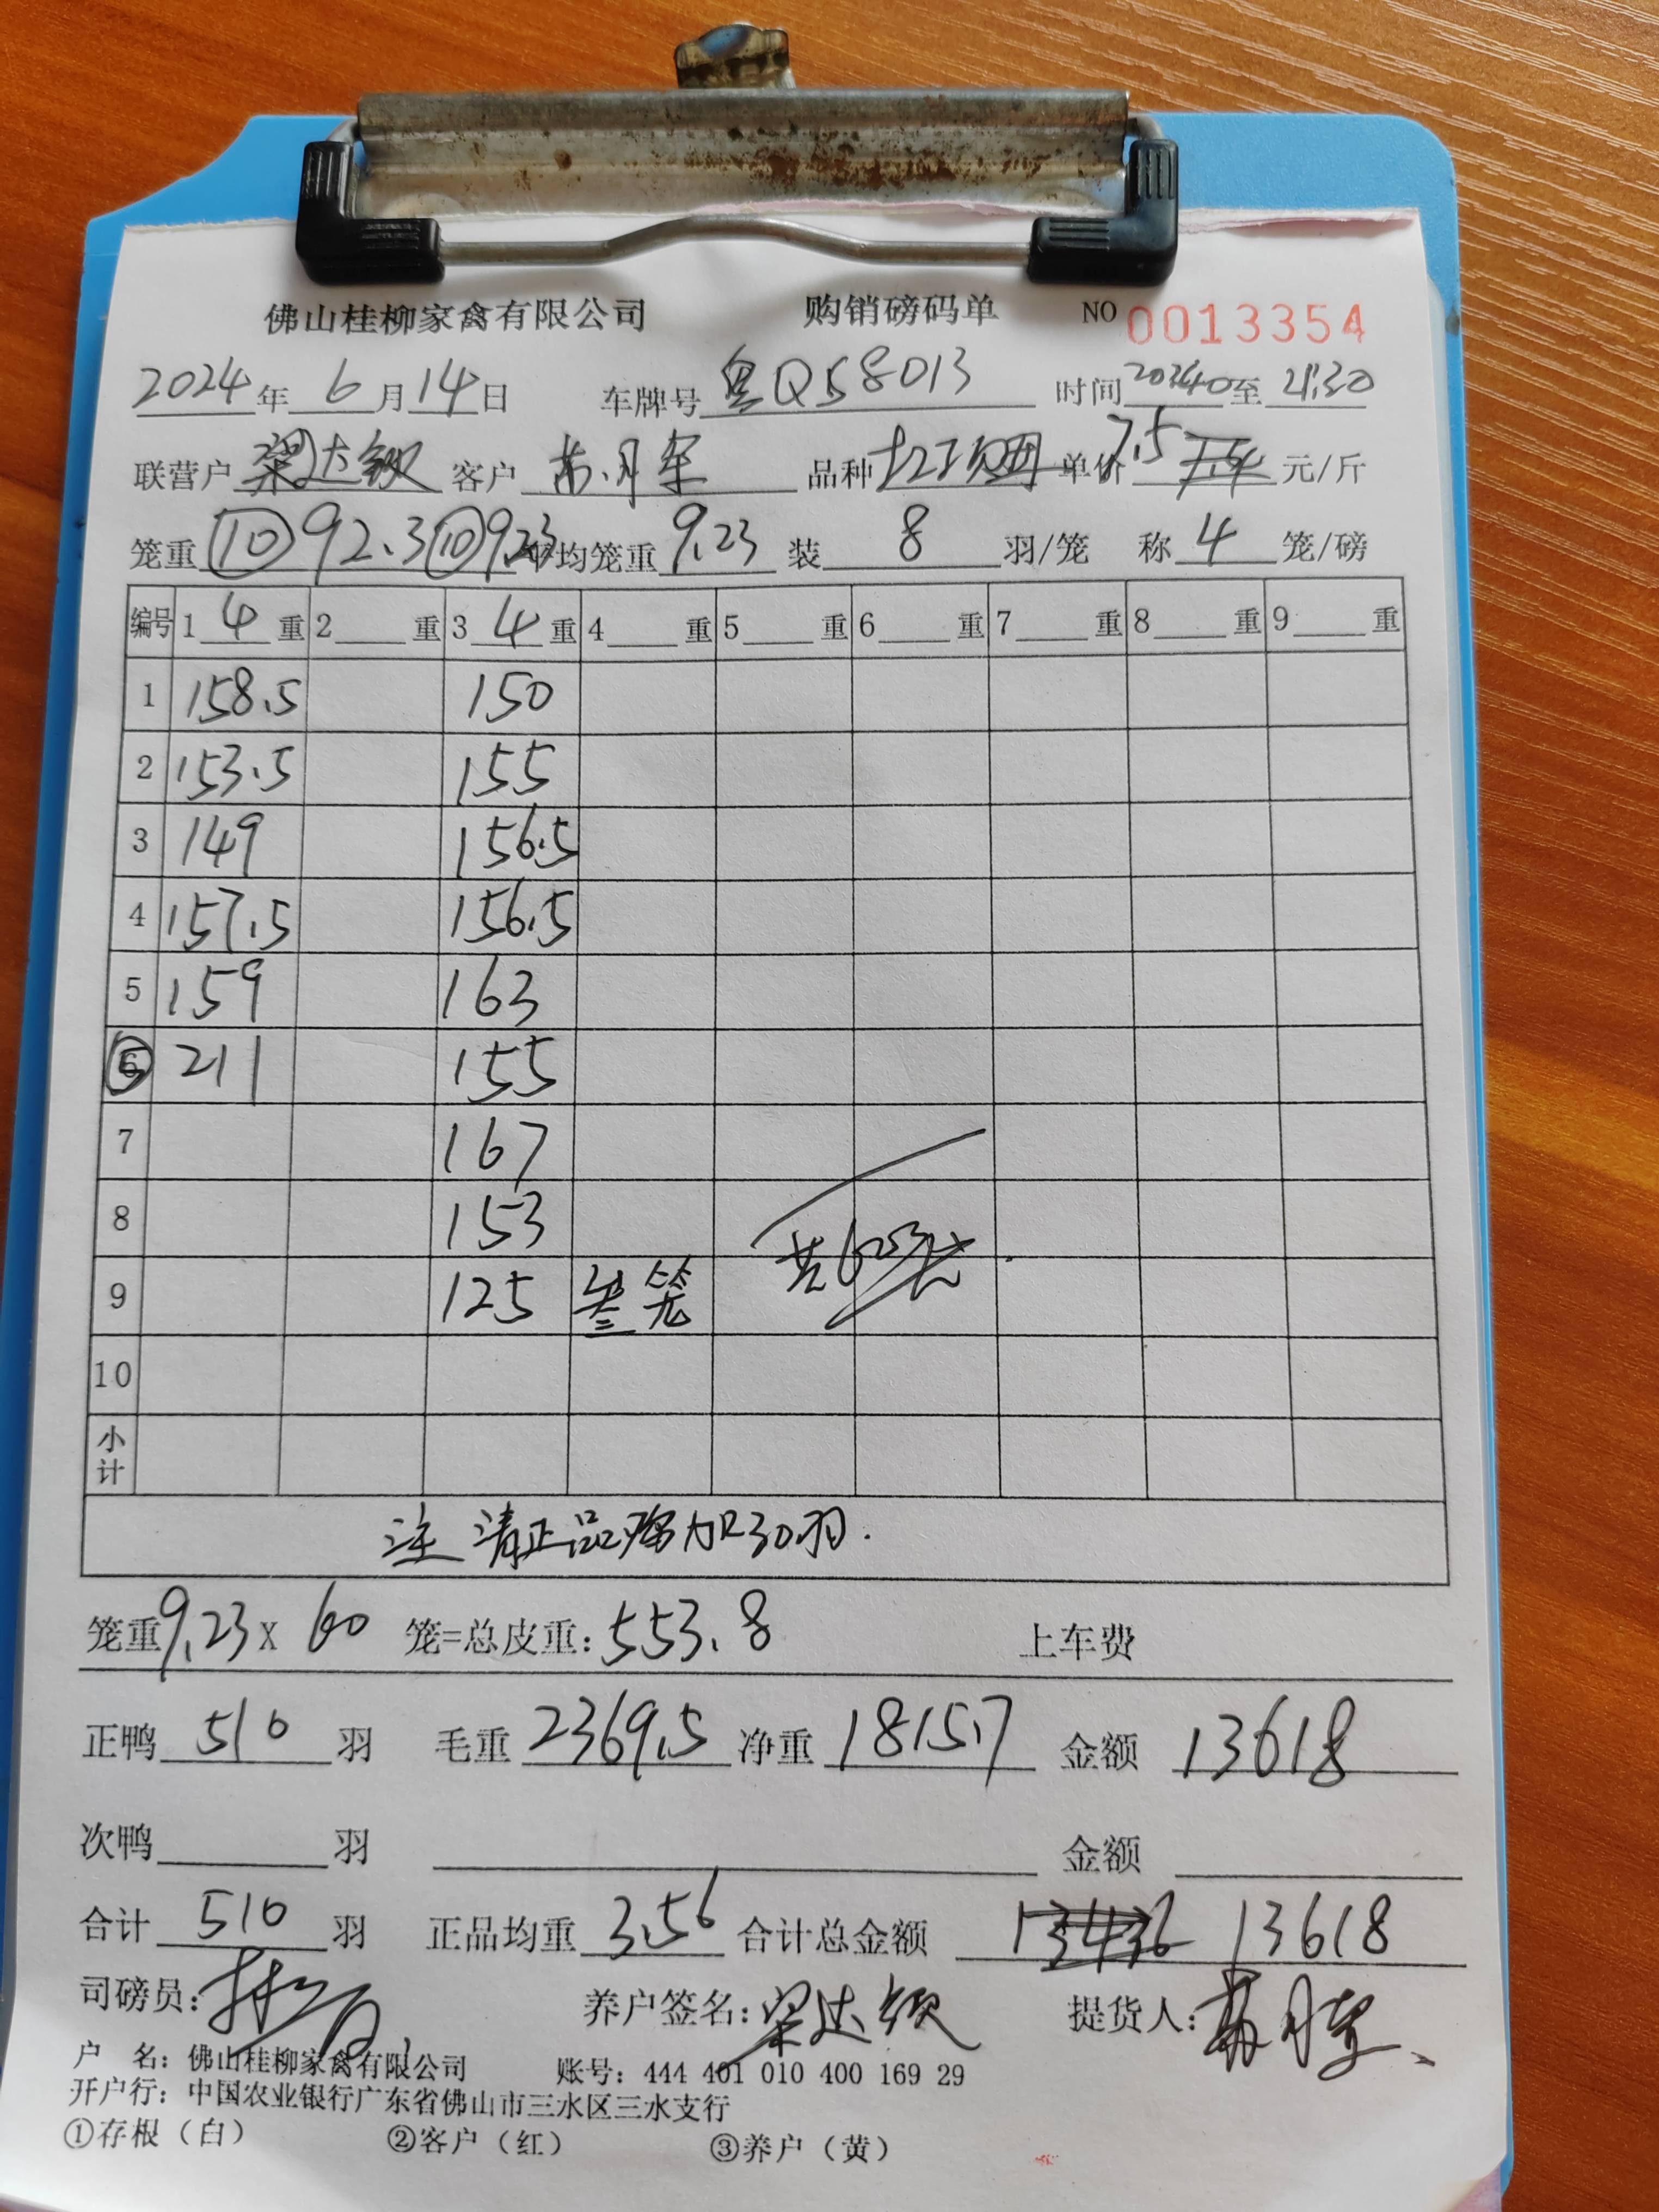 佛山桂柳家禽有限公司 购销磅码单 NO 0013354
2024年 6月14日 车牌号 粤Q58013 时间 至 21:30
联营户 梁达钦 客户 苏月 品种 单价 7.5 元/斤
笼重 ⑩92.3⑩9.23 平均笼重 9.23 装 8 羽/笼 称 4 笼/磅
编号 1 4 重 2 重 3 4 重 4 重 5 重 6 重 7 重 8 重 9 重
1 158.5 150
2 153.5 155
3 149 156.5
4 157.5 156.5
5 159 163
⑤ 211 155
7 167
8 153
9 125 叁笼 共
10
小计
注 清正品 加30羽.
笼重9.23 X 60 笼=总皮重: 553.8 上车费
正鸭 510 羽 毛重 2369.5 净重 1815.7 金额 13618
次鸭 羽 金额
合计 510 羽 正品均重 3.56 合计总金额 13436 13618
司磅员: 养户签名: 梁达钦 提货人: 苏月
户 名: 佛山桂柳家禽有限公司 账号: 444 401 010 400 169 29
开户行: 中国农业银行广东省佛山市三水区三水支行
①存根（白） ②客户（红） ③养户（黄）